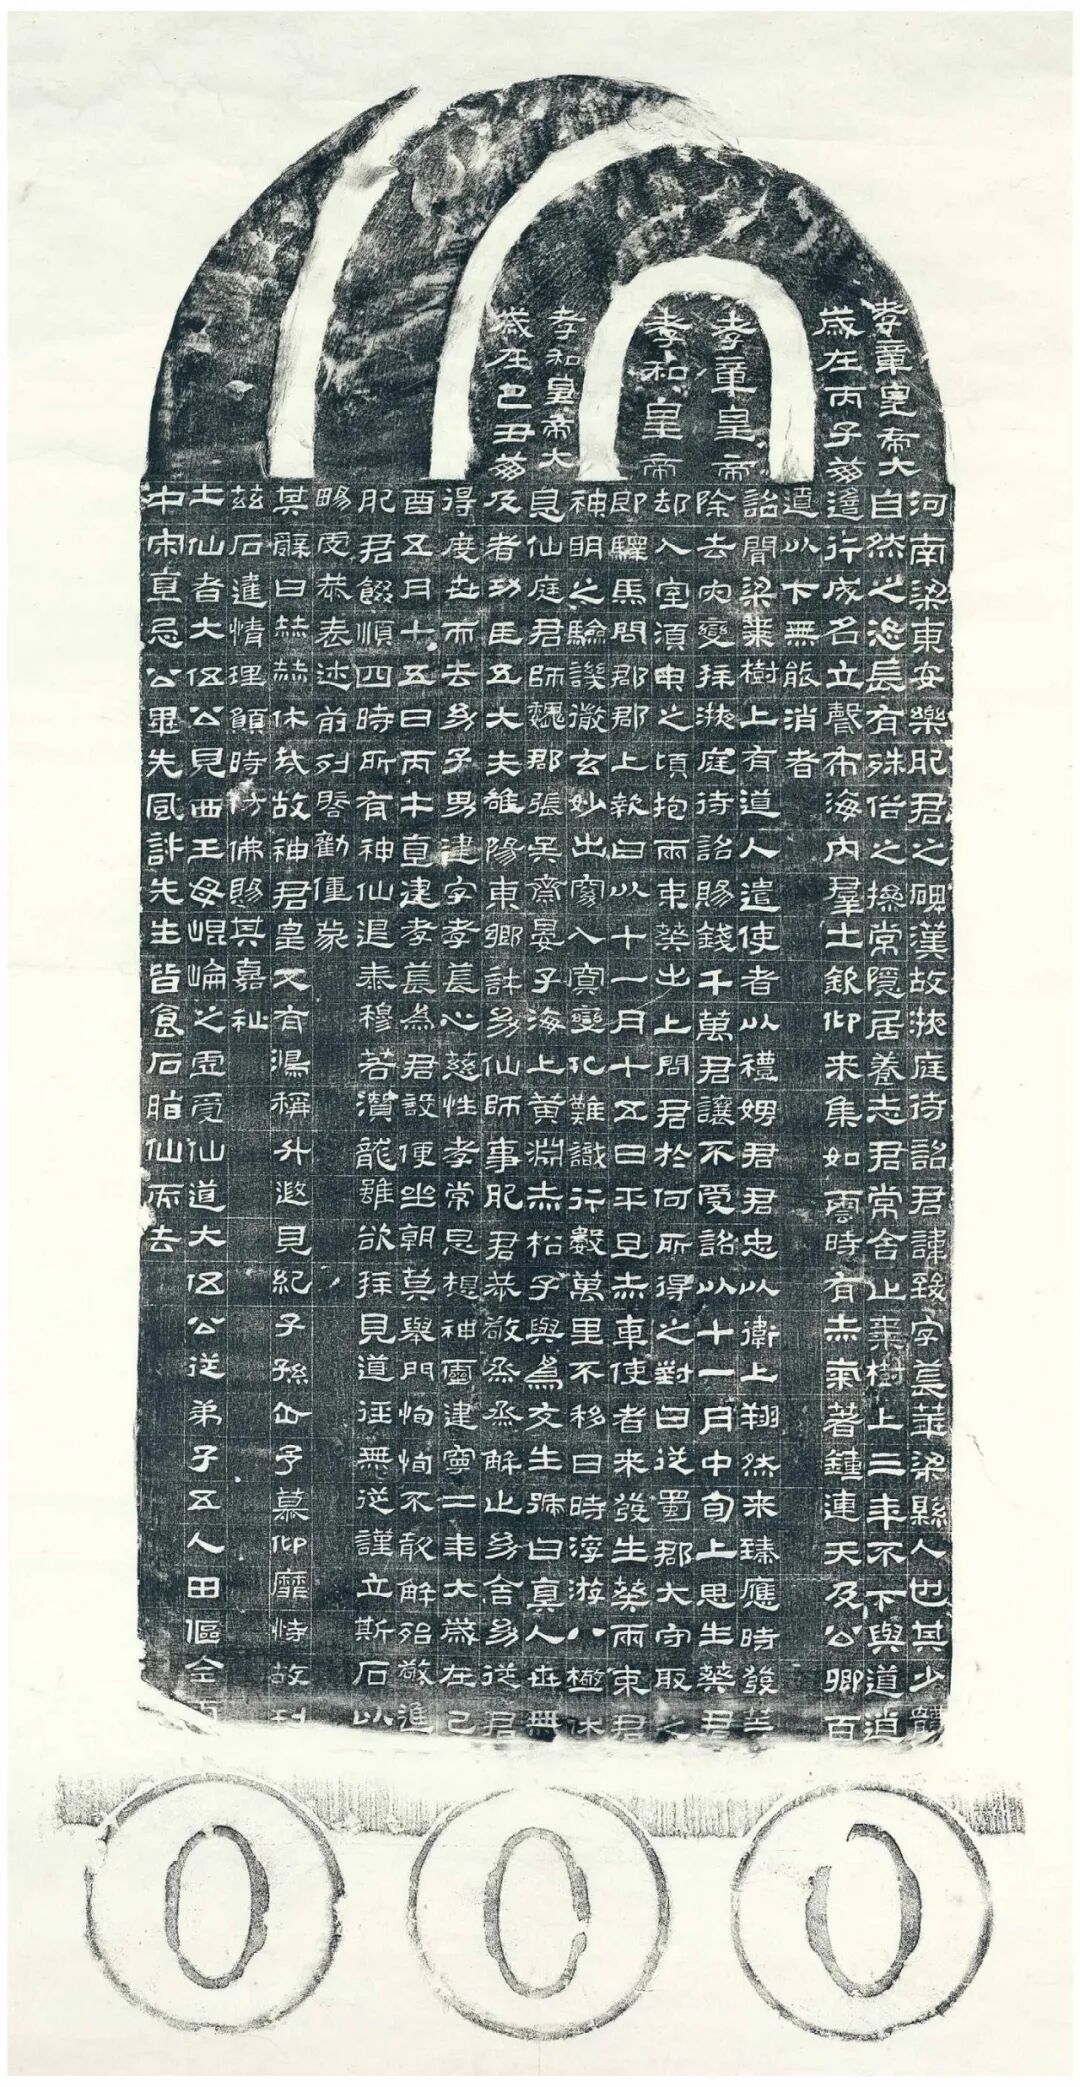 孝章皇帝大
歲在丙子崩
孝章皇帝
孝和皇帝
孝和皇帝大
歲在己丑崩
河南梁東安樂肥君之碑漢故掖庭待詔君諱致字萇華梁縣人也其少體
自然之恣長有殊俗之操常隱居養志君常舍止棗樹上三年不下與道逍
遙行成名立聲布海內羣士欽仰來集如雲時有赤氣著鍾連天及公卿百
遼以下無能消者
詔聞梁棗樹上有道人遣使者以禮娉君君忠以衛上翔然來臻應時發筭
除去灾變拜掖庭待詔賜錢千萬君讓不受詔以十一月中旬上思生葵君
却入室須臾之頃抱兩束葵出上問君於何所得之對曰從蜀郡大守取之
即驛馬問郡郡上報曰以十一月十五日平旦赤車使者來發生葵兩束君
神明之驗譏徹玄妙出窈入冥變化難識行數萬里不移日時浮游八極休
息仙庭君師魏郡張吳齋晏子海上黃淵赤松子與為友生號曰真人世無
及者功臣五大夫雒陽東鄉許幼仙師事肥君恭敬烝烝解止幼舍幼從君
得度世而去幼子男建字孝萇心慈性孝常思想神靈建寧二年大歲在己
酉五月十五日丙午直建孝萇為君設便坐朝莫舉門恂恂不敢解殆敬進
肥君餟順四時所有神仙退泰穆若潛龍雖欲拜見道徑無從謹立斯石以
暢虔恭表述前列啓勸僮蒙
其辭曰赫赫休哉故神君皇又有鴻稱升遐見紀子孫企予慕仰靡恃故刊
茲石達情理願時仿佛賜其嘉祉
土仙者大伍公見西王母崐崘之虛受仙道大伍公從弟子五人田傴全雨
中宋直忌公畢先風許先生皆食石脂仙而去